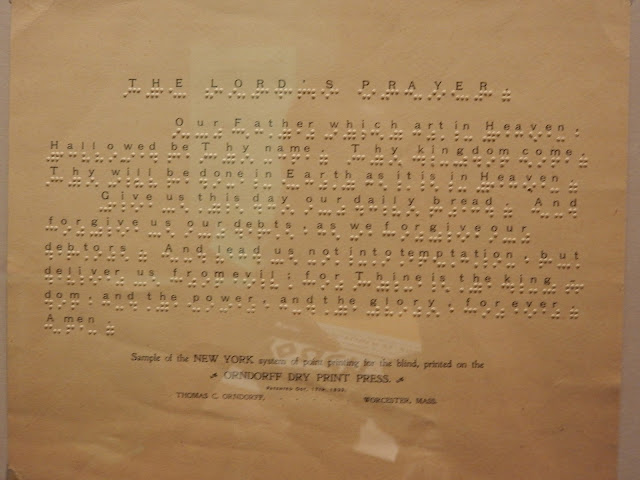 THE LORD'S PRAYER.
Our Father which art in Heaven,
Hallowed be Thy name. Thy kingdom come.
Thy will be done in Earth as it is in Heaven.
Give us this day our daily bread. And
forgive us our debts, as we forgive our
debtors. And lead us not into temptation, but
deliver us from evil; for Thine is the king-
dom, and the power, and the glory, forever.
Amen.
Sample of the NEW YORK system of point printing for the blind, printed on the
ORNDORFF DRY PRINT PRESS.
THOMAS C. ORNDORFF, WORCESTER, MASS.